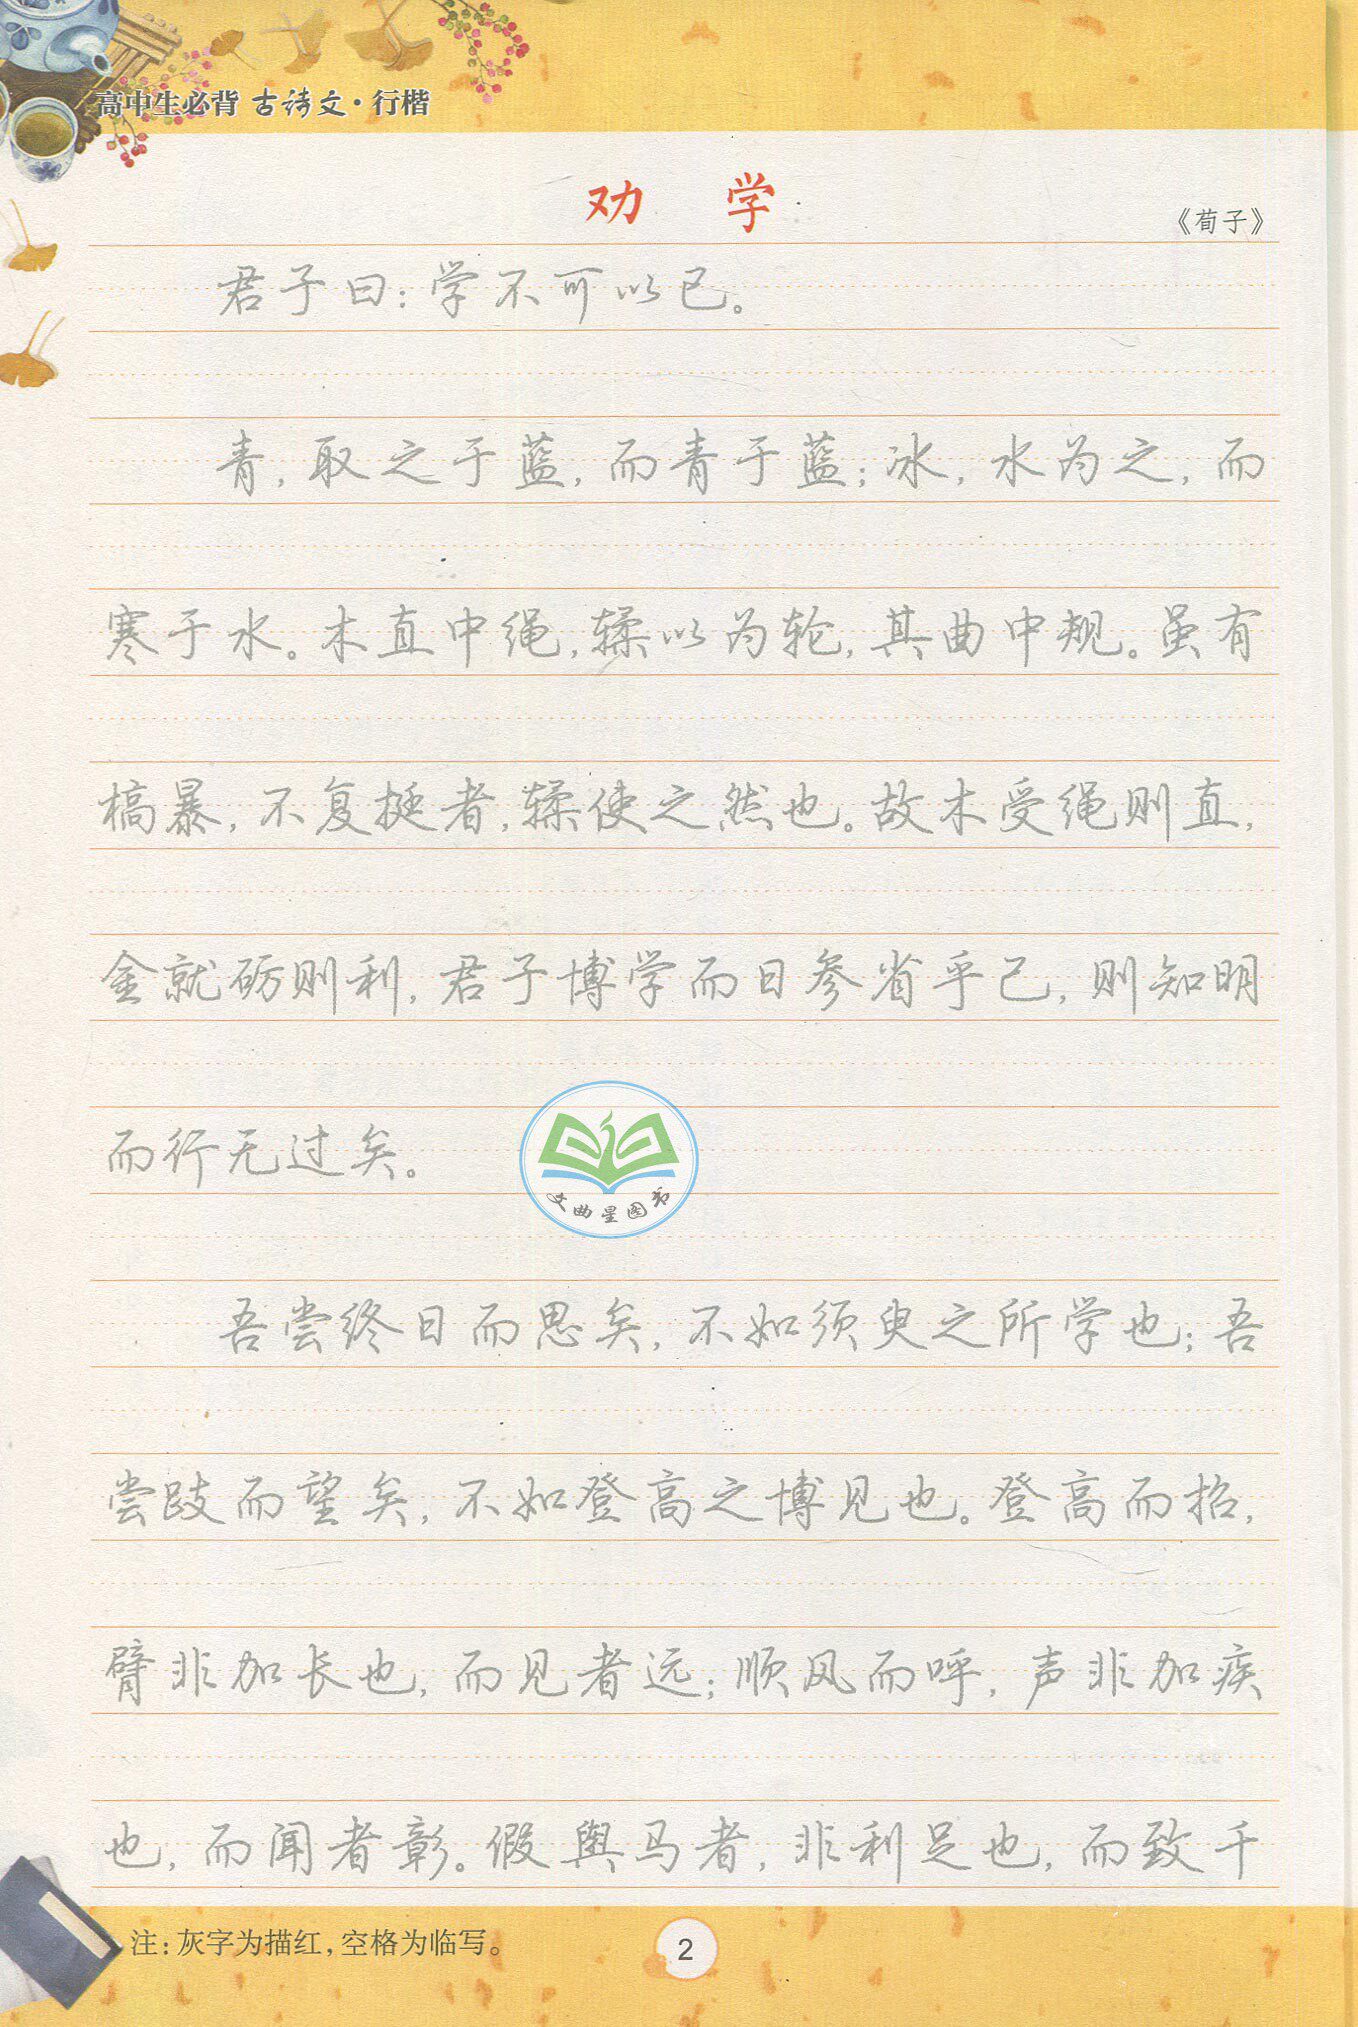 高中生必背 古诗文·行楷
劝 学
《荀子》
君子曰：学不可以已。
青，取之于蓝，而青于蓝；冰，水为之，而
寒于水。木直中绳，𫐓以为轮，其曲中规。虽有
槁暴，不复挺者，𫐓使之然也。故木受绳则直，
金就砺则利，君子博学而日参省乎己，则知明
而行无过矣。
文曲星图书
吾尝终日而思矣，不如须臾之所学也；吾
尝跂而望矣，不如登高之博见也。登高而招，
臂非加长也，而见者远；顺风而呼，声非加疾
也，而闻者彰。假舆马者，非利足也，而致千
注：灰字为描红，空格为临写。
2